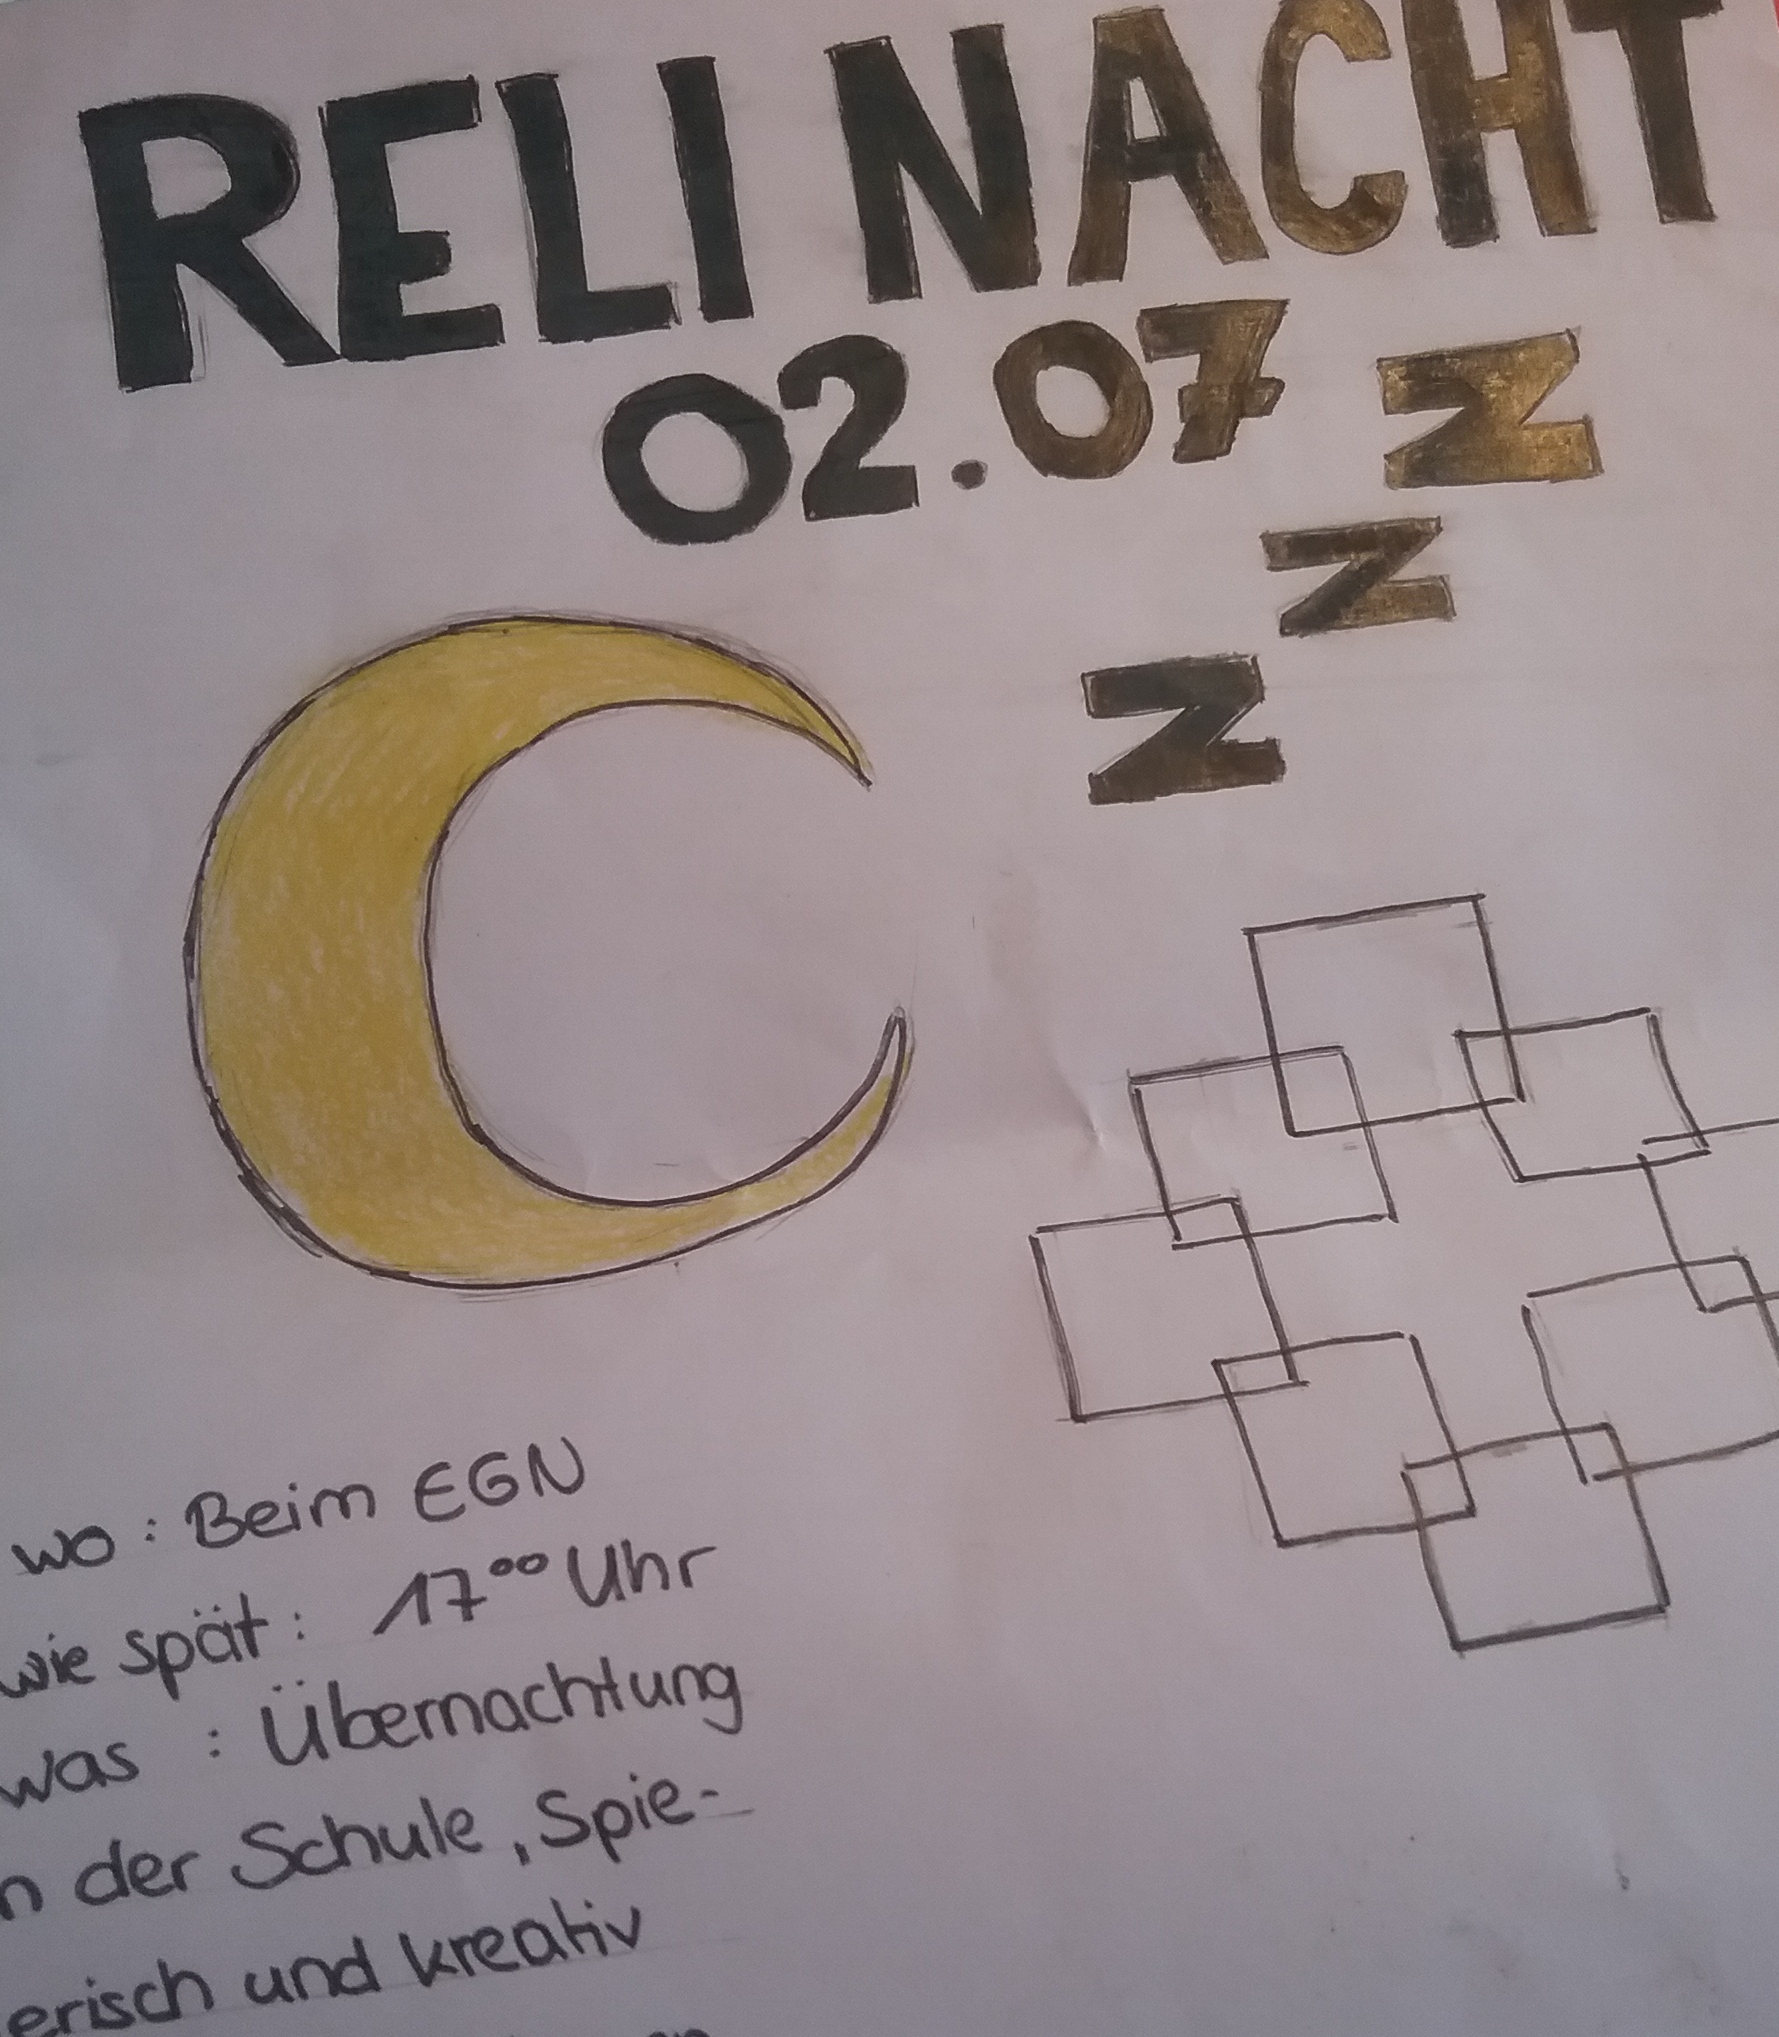 RELI NACHT
02.07
Z
Z
Z
wo: Beim EGN
wie spät: 17⁰⁰ Uhr
was : Übernachtung
n der Schule, Spie-
erisch und kreativ